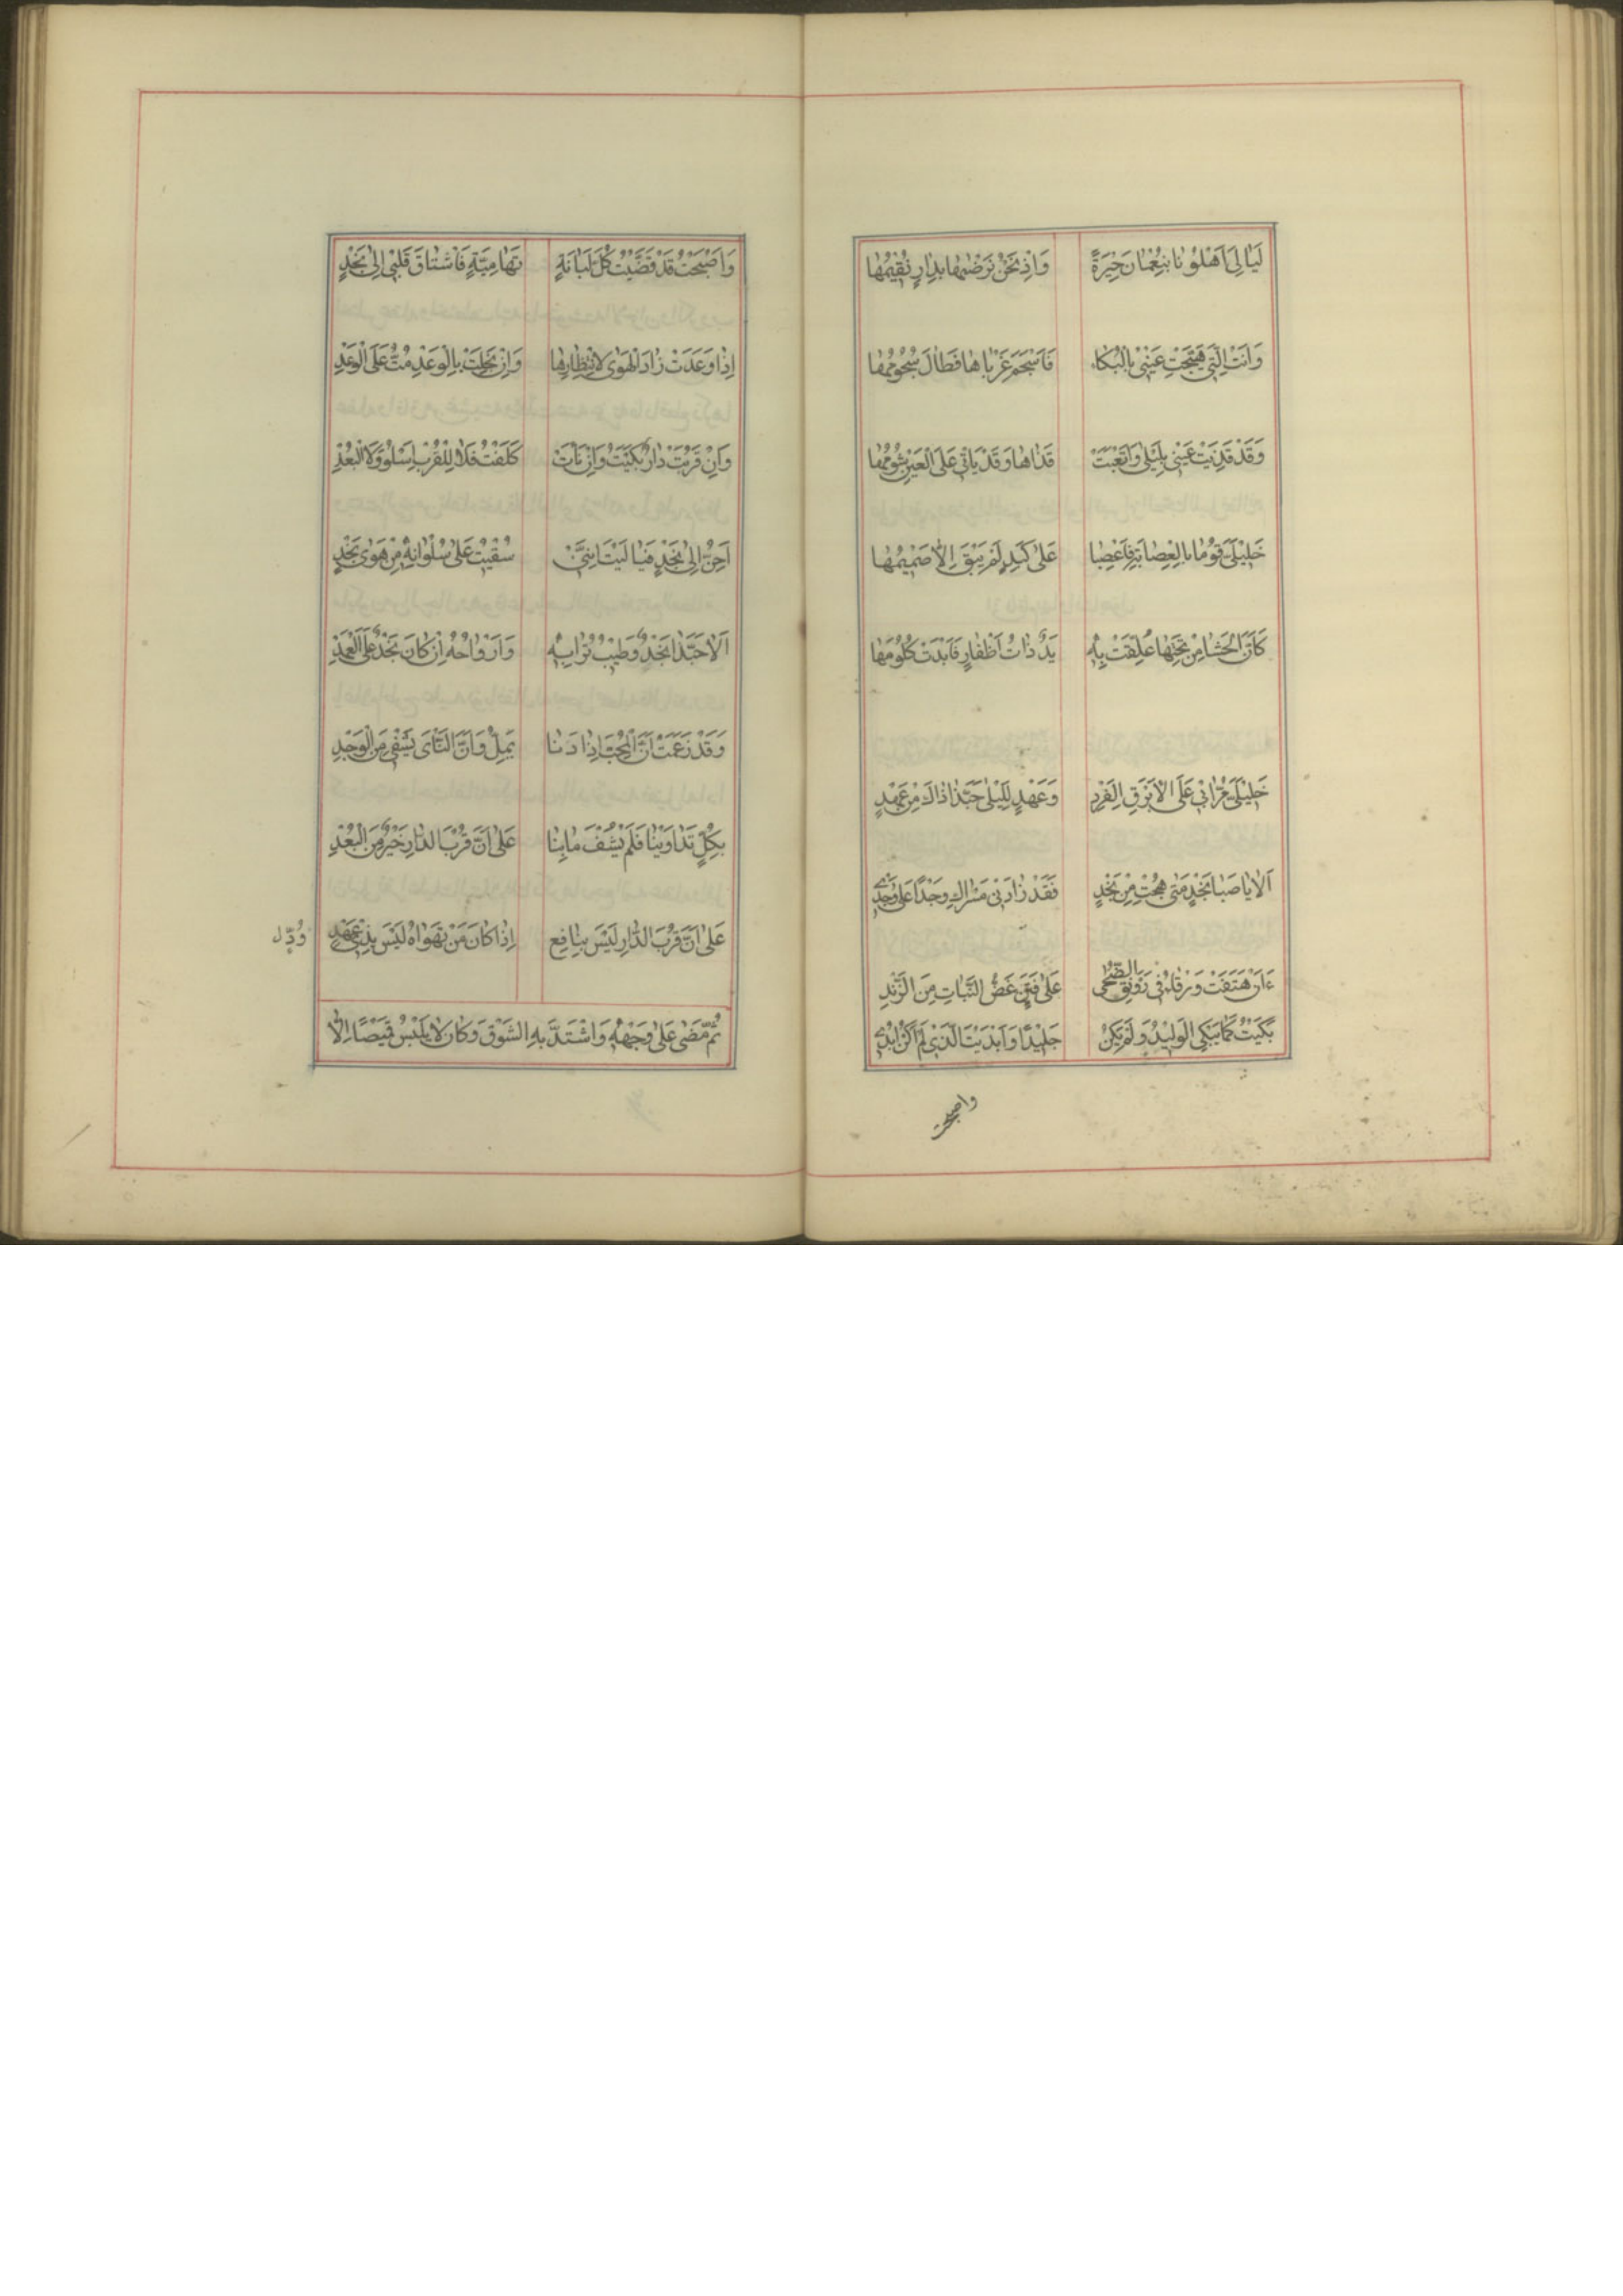 لَيَالِيَ اَهْلُوُنَا بِنُعْمَانَ جِيْرَةً وَاِذْ نَحْنُ نَرْضٰهَا بِدَارٍ نُقِيْمُهَا
وَاَنْتِ الَّتِي هَيَّجْتِ عَيْنِيْ بِالْبُكَاء فَاَسْجَمَ غَرْبَاهَا فَطَالَ سُجُوْمُهَا
وَقَدْ قَذِيَتْ عَيْنِي بِلَيْلٰى وَاَتْعَبَتْ قَذَاهَا وَقَدْ يَاتِي عَلَى الْعَيْنِ شُوْمُهَا
خَلِيْلَيَّ قُوْمَا بِالْعِصَابَةِ فَاعْصِبَا عَلٰى كَبِدٍ لَمْ يَبْقَ اِلَّا صَمِيْمُهَا
كَاَنَّ الْحَشَا مِنْ تَحْتِهَا عُلِّقَتْ بِهٖ يَدٌ ذَاتُ اَظْفَارٍ فَاَبْدَتْ كُلُوْمَهَا
خَلِيْلَيَّ مُرَّا بِي عَلَى الْاَبْرَقِ الْفَرْدِ وَعَهْدٍ لِلَيْلٰى حَبَّذَا ذَاكَ مِنْ عَهْدٍ
اَلَا يَا صَبَا نَجْدٍ مَتٰى هِجْتِ مِنْ نَجْدٍ فَقَدْ زَادَنِيْ مَسْرَاكِ وَجْدًا عَلٰى وَجْدِيْ
ءَاَنْ هَتَفَتْ وَرْقَاءُ فِي رَوْنَقِ الضُّحٰى عَلٰى فَنَنٍ غَضِّ النَّبَاتِ مِنَ الرَّنْدِ
بَكَيْتُ كَمَا يَبْكِي الْوَلِيْدُ وَلَمْ يَكُنْ جَلِيْدًا وَاَبْدَيْتُ الَّذِيْ لَمْ اَكُنْ اُبْدِيْ
واصبحت
وَاَصْبَحْتُ قَدْ قَضَّيْتُ كُلَّ لُبَانَةٍ تَهَامِيَّةٍ فَاشْتَاقَ قَلْبِيْ اِلٰى نَجْدٍ
اِذَا وَعَدَتْ زَادَ الْهَوٰى لِانْتِظَارِهَا وَاِنْ بَخِلَتْ بِالْوَعْدِ مُتُّ عَلَى الْوَعْدِ
وَاِنْ قَرُبَتْ دَارٌ بَكَيْتُ وَاِنْ نَأَتْ كَلِفْتُ فَلَا لِلْقُرْبِ اَسْلُوْ وَلَا الْبُعْدِ
اَحِنُّ اِلٰى نَجْدٍ فَيَا لَيْتَ اَنَّنِيْ سُقِيْتُ عَلٰى سُلْوَانِهٖ مِنْ هَوٰى نَجْدٍ
اَلَا حَبَّذَا نَجْدٌ وَطِيْبُ تُرَابِهٖ وَاَرْوَاحُهٗ اِنْ كَانَ نَجْدٌ عَلَى الْعَهْدِ
وَقَدْ زَعَمَتْ اَنَّ الْمُحِبَّ اِذَا دَنَا يَمِلُّ وَاَنَّ النَّأْيَ يَشْفِي مِنَ الْوَجْدِ
بِكُلٍّ تَدَاوَيْنَا فَلَمْ يُشْفَ مَا بِنَا عَلٰى اَنَّ قُرْبَ الدَّارِ خَيْرٌ مِنَ الْبُعْدِ
عَلٰى اَنَّ قُرْبَ الدَّارِ لَيْسَ بِنَافِعٍ اِذَا كَانَ مَنْ تَهْوَاهُ لَيْسَ بِذِيْ عَهْدٍ
وُدٍّ ل
ثُمَّ مَضٰى عَلٰى وَجْهِهٖ وَاشْتَدَّ بِهِ الشَّوْقُ وَكَانَ لَا يَلْبَسُ قَمِيْصًا اِلَّا